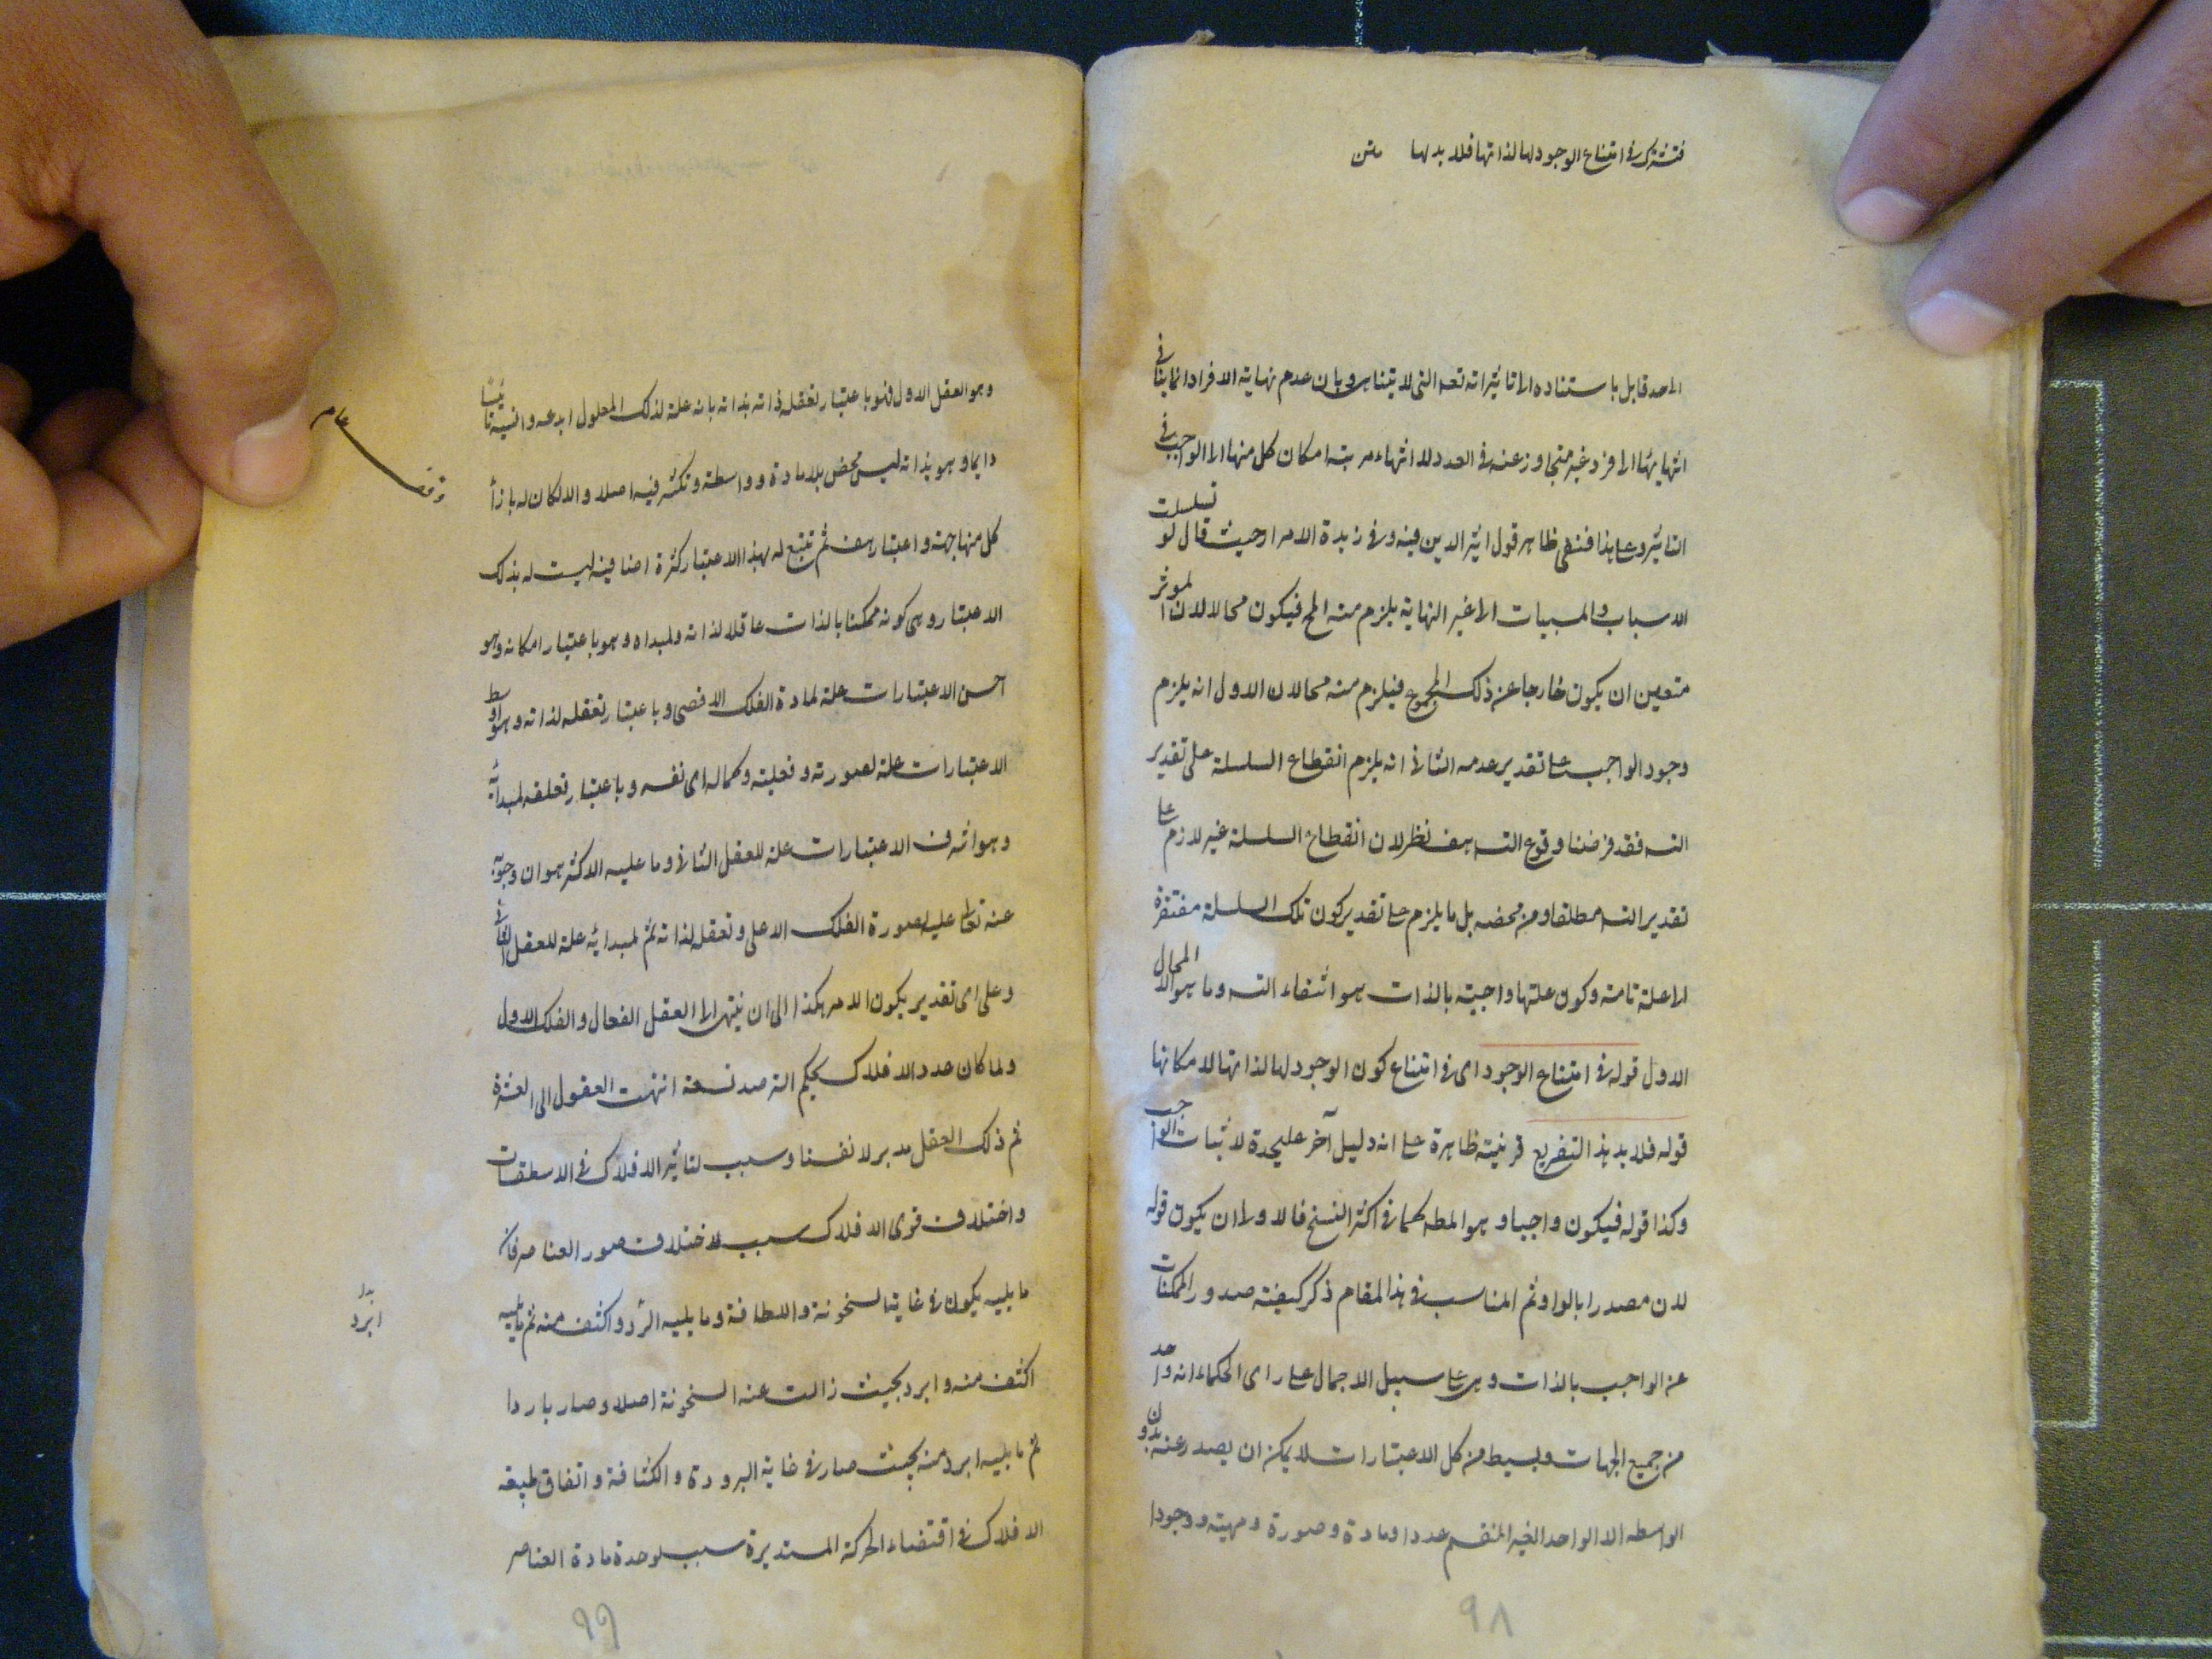 فتشترك في امتناع الوجود لها لذاتها فلا بد لها متن
قابل باستناده الى تاثيراته تعه التى لا يتناهى وبان عدم نهاية الافراد انما ينافى
انتهائها الى فرد غير متجاوز عنه فى العدد لا انتهاء مرتبة امكان كل منها الى الواجب فى
التاثير وعلى هذا ظاهر قول اثير الدين فيه وفى زبدة الاسرار حيث قال لو تسلسلت
الاسباب والمسببات الى غير النهاية يلزم منه المح فيكون محالا لان الموثر
متعين ان يكون خارجا عن ذلك المجموع فيلزم منه محالان الاول انه يلزم
وجود الواجب على تقدير عدمه الثانى انه يلزم انقطاع السلسلة على تقدير
التسـ فقد فرضنا وقوع التسـ هف نظر لان انقطاع السلسلة غير لازم على
تقدير التسـ مطلقا ومن محضه بل ما يلزم على تقدير كون تلك السلسلة مفتقرة
الى علة تامة وكون علتها واجبة بالذات هو انتفاء التسـ وما هو الا المحال
الاول قوله فى امتناع الوجود اى فى امتناع كون الوجود لها لذاتها لامكانها
قوله فلا بد هذا التفريع قرينة ظاهرة على انه دليل آخر عليحدة لاثبات الواجب
وكذا قوله فيكون واجبا وهو المطـ كما فى اكثر النسخ فالاولى ان يكون قوله
لان مصدرا بالواو ثم المناسب فى هذا المقام ذكر كيفية صدور الممكنات
عن الواجب بالذات وهى على سبيل الاجمال على راى الحكماء انه واحد
من جميع الجهات وبسيط من كل الاعتبارات لا يمكن ان يصدر عنه بدون
الواسطه الا الواحد الغير المنقسم عددا ومادة وصورة ومهية ووجودا
٩٨
وهو العقل الاول فهو باعتبار تعقله ذاته بذاته بانه علة لذلك المعلول ابدعه
دايما وهو بذاته ليس محض بلا مادة وواسطة وتكثر فيه اصلا والا لكان له بازاء
كل منها جهة واعتبار هف ثم تتبع له بهذا الاعتبار كثرة اضافية ليست له بذلك
الاعتبار وهى كونه ممكنا بالذات عاقلا لذاته ولمبداه وهو باعتبار امكانه وهو
اخس الاعتبارات علة لمادة الفلك الاقصى وباعتبار تعقله لذاته وهو اوسط
الاعتبارات علة لصورته وفعليته وكماله اى نفسه وباعتبار تعلقه لمبدائه
وهو اشرف الاعتبارات علة للعقل الثانى وما عليه الاكثر هو ان وجوبه
عنه تعالى عليه لصورة الفلك الاعلى وتعقل لذاته ثم لمبدائه علة للعقل الثانى
وعلى اى تقدير يكون الامر هكذا الى ان ينتهى الى العقل الفعال والفلك الاول
ولما كان عدد الافلاك بحكم الرصد تسعة انتهت العقول الى العشرة
ثم ذلك العقل مدبر لانفسنا وسبب لتاثير الافلاك فى الاسطقسات
واختلاف قوى الافلاك سبب لاختلاف صور العناصر فان
ما يليه يكون فى غاية السخونة واللطافة وما يليه ابرد واكثف منه ثم ما يليه
اكثف منه وابرد بحيث زالت عنه السخونة اصلا وصار باردا
ثم ما يليه ابرد منه بحيث صار فى غاية البرودة والكثافة واتفاق طبيعة
الافلاك فى اقتضاء الحركة المستديرة سبب لوحدة مادة العناصر
بدل
ابرد
٩٩